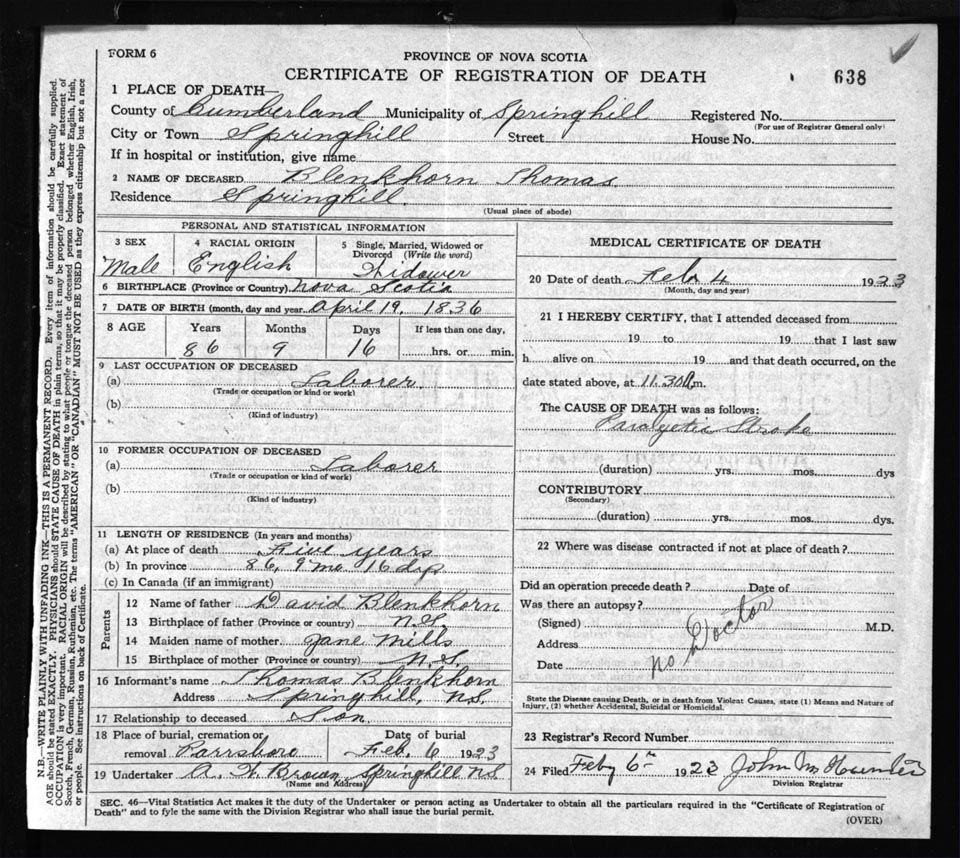 FORM 6
PROVINCE OF NOVA SCOTIA
CERTIFICATE OF REGISTRATION OF DEATH
638
1 PLACE OF DEATH—
County of Cumberland Municipality of Springhill Registered No.
(For use of Registrar General only)
City or Town Springhill Street House No.
If in hospital or institution, give name
2 NAME OF DECEASED Blenkhorn Thomas
Residence Springhill
(Usual place of abode)
PERSONAL AND STATISTICAL INFORMATION
3 SEX Male
4 RACIAL ORIGIN English
5 Single, Married, Widowed or Divorced (Write the word) Widower
6 BIRTHPLACE (Province or Country) Nova Scotia
7 DATE OF BIRTH (month, day and year) April 19, 1836
8 AGE Years Months Days If less than one day,
86 9 16 hrs. or min.
9 LAST OCCUPATION OF DECEASED
(a) Laborer
(Trade or occupation or kind or work)
(b)
(Kind of industry)
10 FORMER OCCUPATION OF DECEASED
(a) Laborer
(Trade or occupation or kind of work)
(b)
(Kind of industry)
11 LENGTH OF RESIDENCE (In years and months)
(a) At place of death Five years
(b) In province 86, 9 mo 16 dys
(c) In Canada (if an immigrant)
Parents
12 Name of father David Blenkhorn
13 Birthplace of father (Province or country) N.S.
14 Maiden name of mother Jane Mills
15 Birthplace of mother (Province or country) N.S.
16 Informant's name Thomas Blenkhorn
Address Springhill, N.S.
17 Relationship to deceased Son
18 Place of burial, cremation or removal Parrsboro
Date of burial Feb. 6 1923
19 Undertaker A. Brown, Springhill N.S.
(Name and Address)
MEDICAL CERTIFICATE OF DEATH
20 Date of death Feb 4 1923
(Month, day and year)
21 I HEREBY CERTIFY, that I attended deceased from
19 to 19 that I last saw
h alive on 19 and that death occurred, on the
date stated above, at 11.30 m.
The CAUSE OF DEATH was as follows:
Paralyetic Stroke
(duration) yrs. mos. dys
CONTRIBUTORY
(Secondary)
(duration) yrs. mos. dys.
22 Where was disease contracted if not at place of death?
Did an operation precede death? Date of
Was there an autopsy?
(Signed) M.D.
Address
Date
no Doctor
State the Disease causing Death, or in death from Violent Causes, state (1) Means and Nature of
Injury, (2) whether Accidental, Suicidal or Homicidal.
23 Registrar's Record Number
24 Filed Feby 6th 1923 John M Hunter
Division Registrar
SEC. 46—Vital Statistics Act makes it the duty of the Undertaker or person acting as Undertaker to obtain all the particulars required in the "Certificate of Registration of
Death" and to fyle the same with the Division Registrar who shall issue the burial permit.
(OVER)
N.B.—WRITE PLAINLY WITH UNFADING INK—THIS IS A PERMANENT RECORD. Every item of information should be carefully supplied.
AGE should be stated EXACTLY. PHYSICIANS should STATE CAUSE OF DEATH in plain terms, so that it may be properly classified. Exact statement of
OCCUPATION is very important. RACIAL ORIGIN will be described by stating to what people or tongue the deceased person belonged whether English, Irish,
Scotch, French, German, Russian, Ruthenian, etc. The terms "AMERICAN" OR "CANADIAN" MUST NOT BE USED as they express citizenship but not a race
or people. See instructions on back of Certificate.